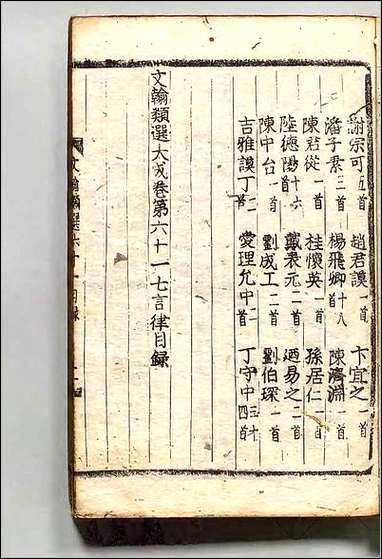 謝宗可五首 趙君謨一首 卞宜之一首
潘子素三首 楊飛卿十八首 陳濟淵一首
陳君從一首 桂懷英一首 孫居仁一首
陸德陽十六首 戴表元二首 廼易之二首
陳中台一首 劉成工二首 劉伯琛一首
吉雅謨丁二首 愛理允中二首 丁守中三十四首
文翰類選大成卷第六十一七言律目録
文翰類選六十一目録